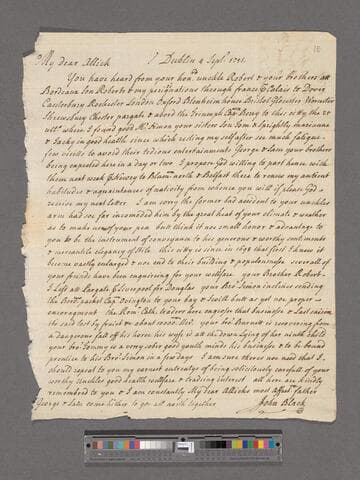 18
My dear Allick Dublin 4 Sept. 1751.
You have heard from your hon'd unckle Robert & your brothers att
Bordeaux Jon Roberts & my perigrinations through france Calais to Dover
Canterbury Rochester London Oxford Blenheim house Bristol Gloucester Worcester
Shrewsbury Chester pargate & abord the Triumph Capt Berry to this city the 28
ult where I found good Mr Simon your sisters son Sam & sprightly
& Jacky in good health since which resting my self after soe much fatigue
few visits to avoid their tedious entertainments George & Sam your brothers
being expected here in a day or two I propose God willing to part hence with
them next week to Newry to Blam north & Belfast there to renew my antient
habitudes & aquaintances of nativity from whence you will if please God
receive my next letter I am sorry the former bad accident to your unckles
arm had soe far incomoded him by the great heat of your climate & weather
as to make use of your pen but think it noe small honor & advantage to
you to be the instrument of conveyance to his generous & worthy sentiments
& mercantile elegancy of stile this city is since in 1698 that first I knew it
become vastly enlarged & noe end to their building & populousness severall of
your friends have been enquiring for your wellfare your Brother Robert
I left att Pargate & Liverpool for Douglas your Bro Simon inclines sending
the Brig packet Cap Ovington to your bay & I wish butt as yet noe proper
encoragment the Rom Cath traders here engrosse that business & Last season
its said lost by fruit &c about 10000 ster your bro is recovering from
a dangerous fall of his horse his wife is att the down lying of her ninth child
your bro Tommy is a very sober good youth minds his business & to be bound
prentice to his Bro Simon in a few days I am sure theres noe need that I
should repeat to you my earnest entreatys of being solicitously carefull of your
worthy Unckles good health wellfare & trading interest all here are kindly
remembred to you & I am constantly My dear Allicks most affect father
George & Sam come hither to goe all north together John Black